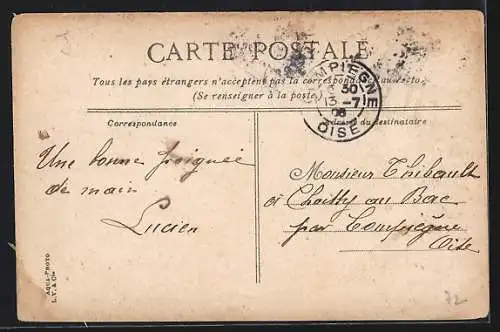 CARTE POSTALE
Tous les pays étrangers n'acceptent pas la correspondance au recto
(Se renseigner à la poste)
COMPIÈGNE
30
13-7
08
OISE
Correspondance
Adresse du destinataire
Une bonne poignée
de main
Lucien
Monsieur Thibault
à Choisy au Bac
par Compiègne
Oise
AQUA-PHOTO
L.V. & Cie
72